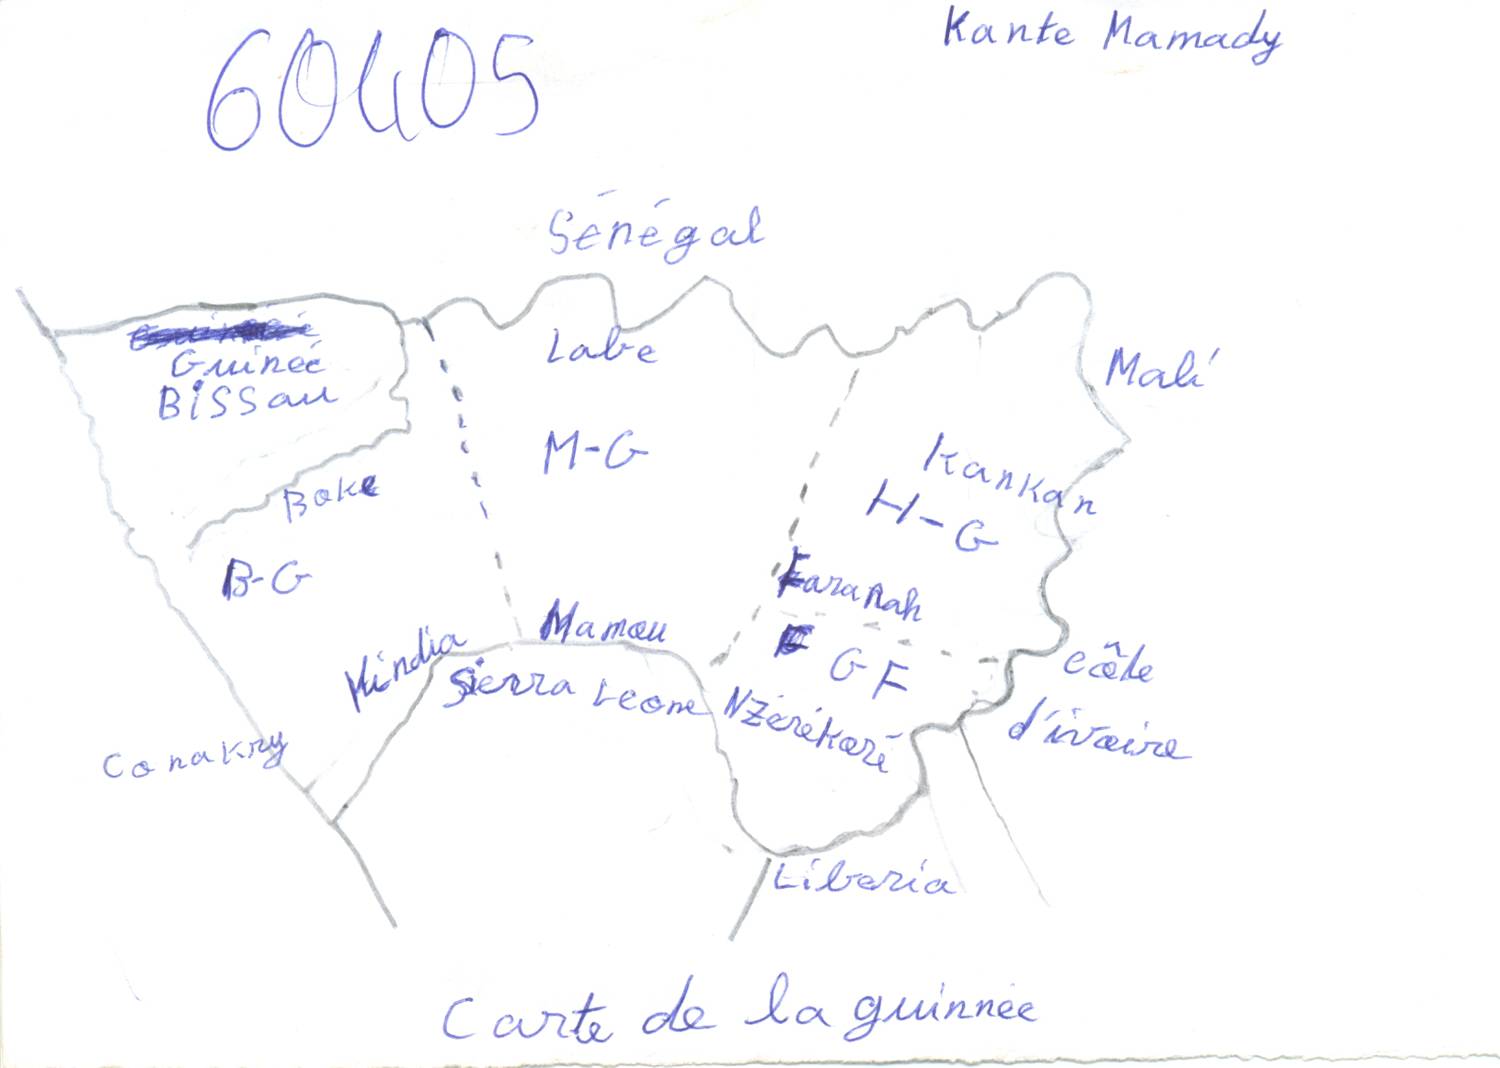 60405
Kante Mamady
Sénégal
Guineé
BiSSau
Labe
Mali
M-G
Kankan
H-G
Boke
B-G
Faranah
Mamou
Kindia
Sierra Leone
G F
côte
d'ivoire
NZérékoré
Conakry
Liberia
Carte de la guinnée